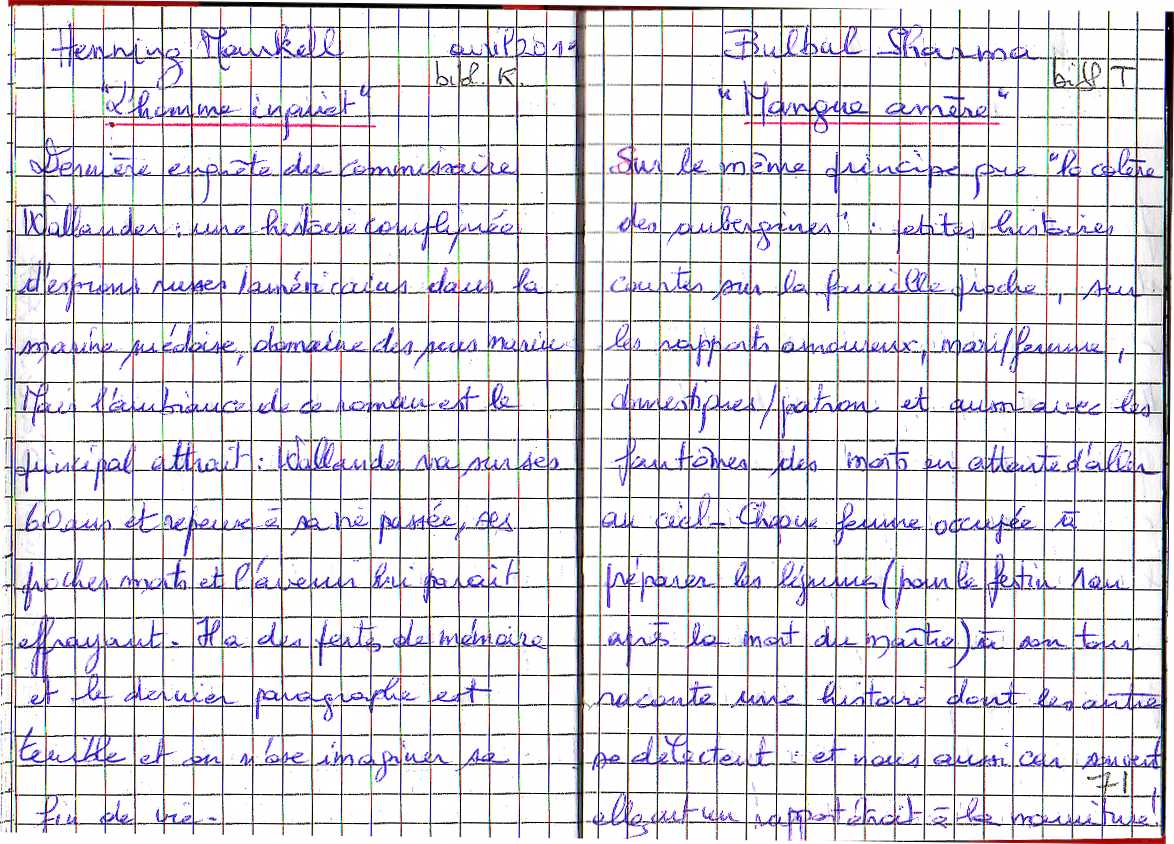 Henning Mankell avril 2011
bibl. K.
"L'homme inquiet"
Dernière enquête du commissaire
Wallander : une histoire compliquée
d'espions russes/américains dans la
marine suédoise, domaine des sous marins
Mais l'ambiance de ce roman est le
principal attrait : Wallander va sur ses
60 ans et repense à sa vie passée, ses
proches morts et l'avenir lui parait
effrayant. Il a des pertes de mémoire
et le dernier paragraphe est
terrible et on n'ose imaginer sa
fin de vie.
Bulbul Sharma
bibl T
"Mangue amère"
Sur le même principe que "la colère
des aubergines" : petites histoires
courtes sur la famille proche, sur
les rapports amoureux, mari/femme,
domestiques/patron et aussi avec les
fantômes des morts en attente d'aller
au ciel - Chaque femme occupée à
préparer les légumes (pour le festin 1 an
après la mort du maître) à son tour
raconte une histoire dont les autres
se délectent : et nous aussi car souvent
elles ont un rapport étroit à la nourriture !
71